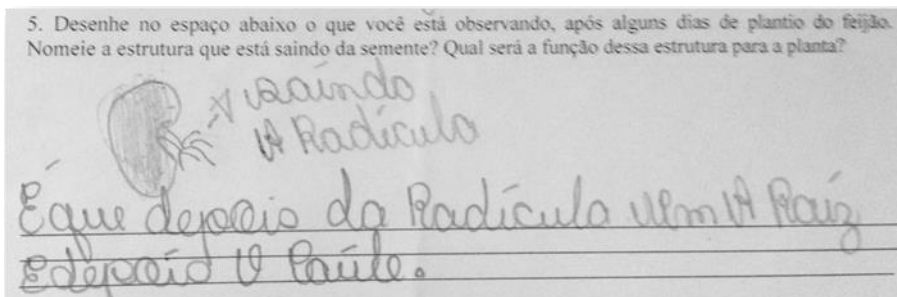 5. Desenhe no espaço abaixo o que você está observando, após alguns dias de plantio do feijão.
Nomeie a estrutura que está saindo da semente? Qual será a função dessa estrutura para a planta?
saindo
A Radícula
É que depois da Radícula vem A Raíz
E depois O Caúle.